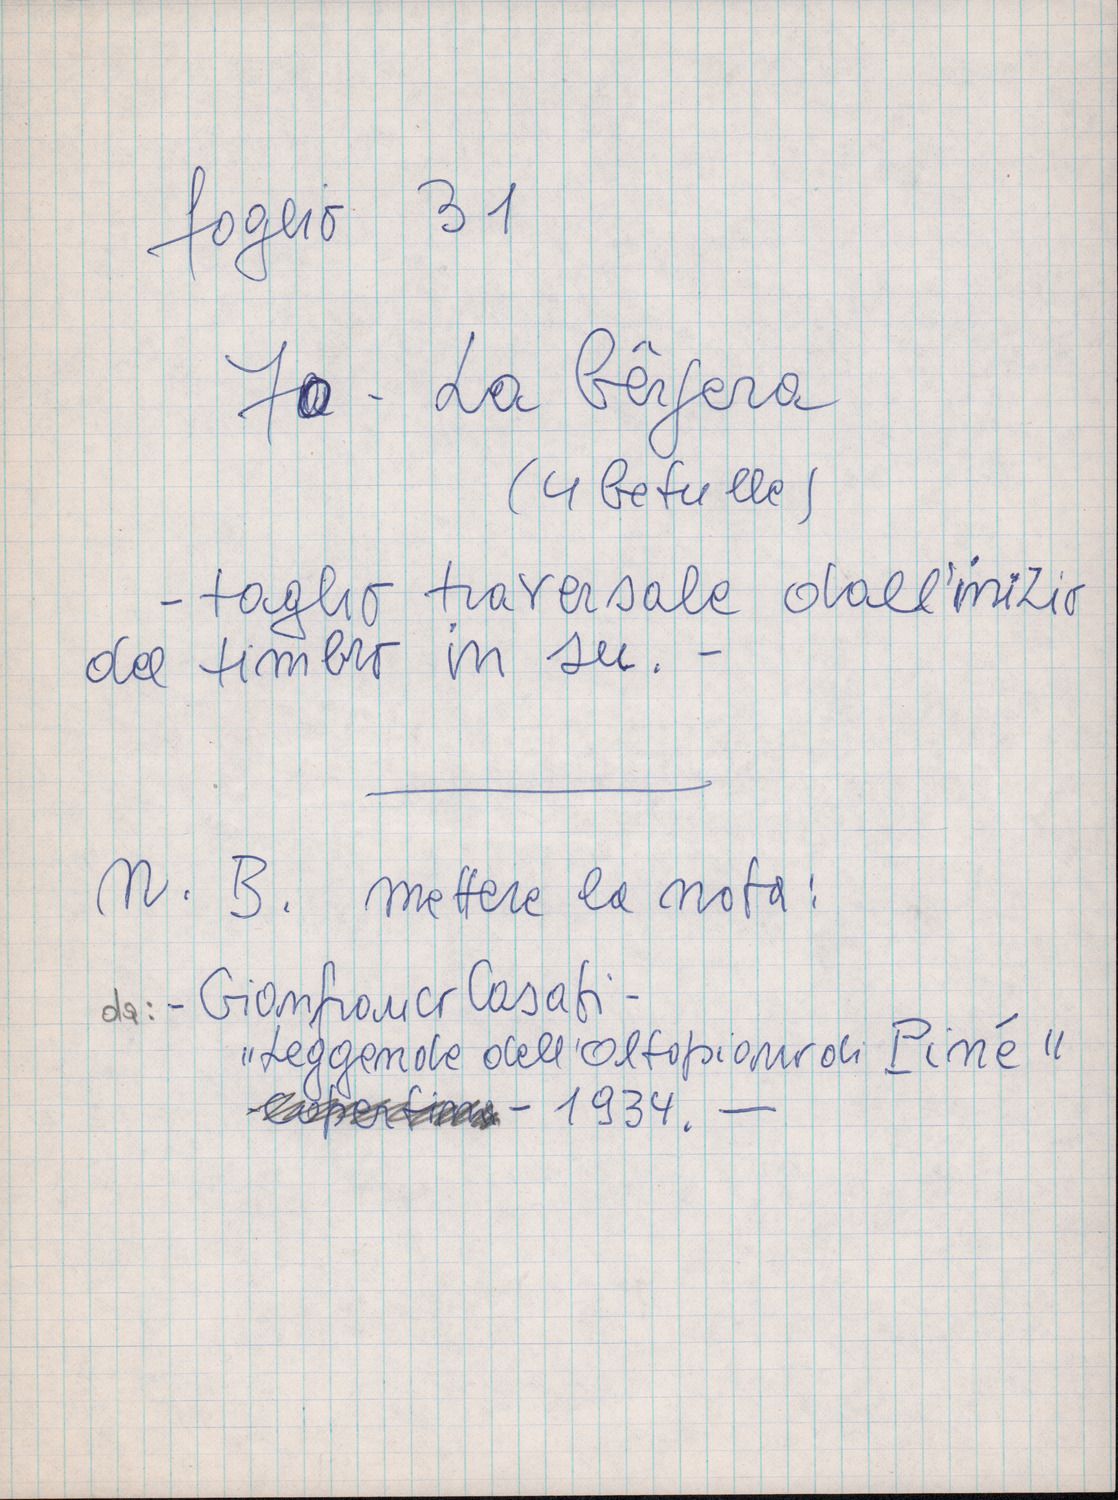 foglio 31
7a - La bêrgera
(4 betulle)
- taglio traversale dall'inizio
del timbro in su. -
N. B. mettere la nota:
da: - Gianfranco Casati -
"Leggende dell'Altopiano di Piné"
- 1934. —